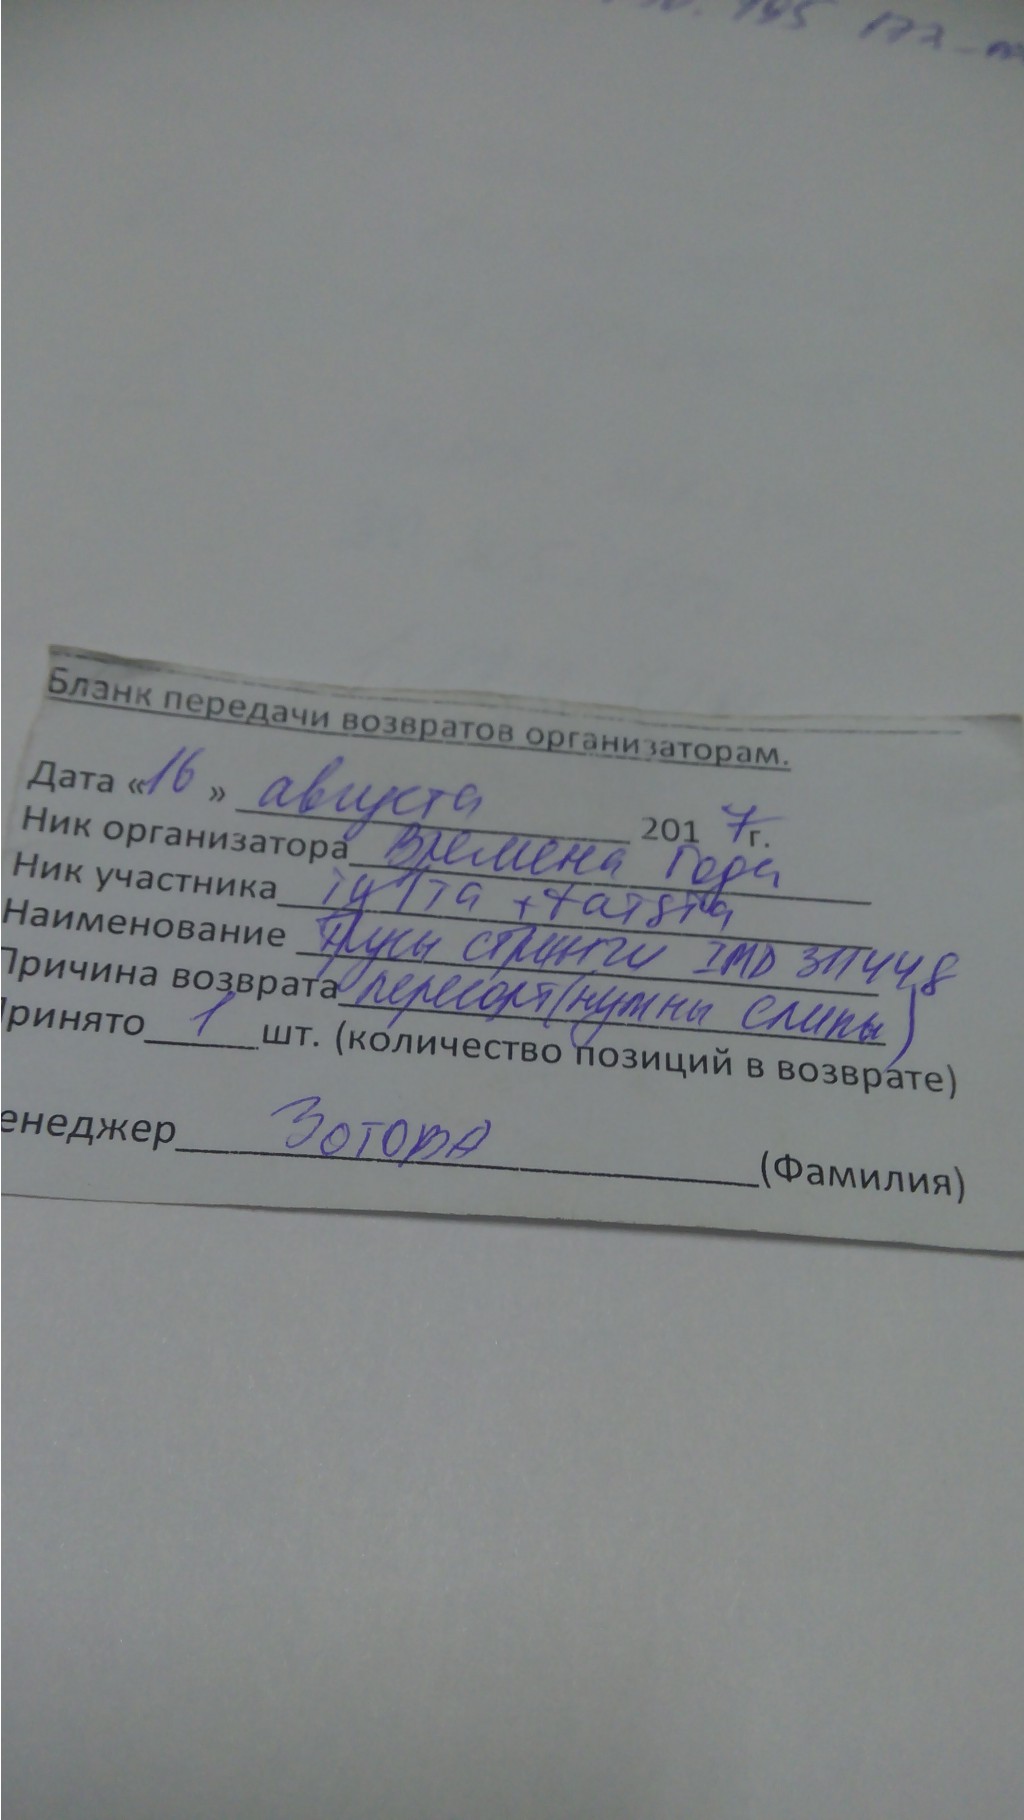 195 177
Бланк передачи возвратов организаторам.
Дата «16» августа 2017г.
Ник организатора Времена Года
Ник участника
Наименование Трусы стринги IMD 311448
Причина возврата пересорт (нужны слипы)
Принято 1 шт. (количество позиций в возврате)
енеджер Зотова (Фамилия)